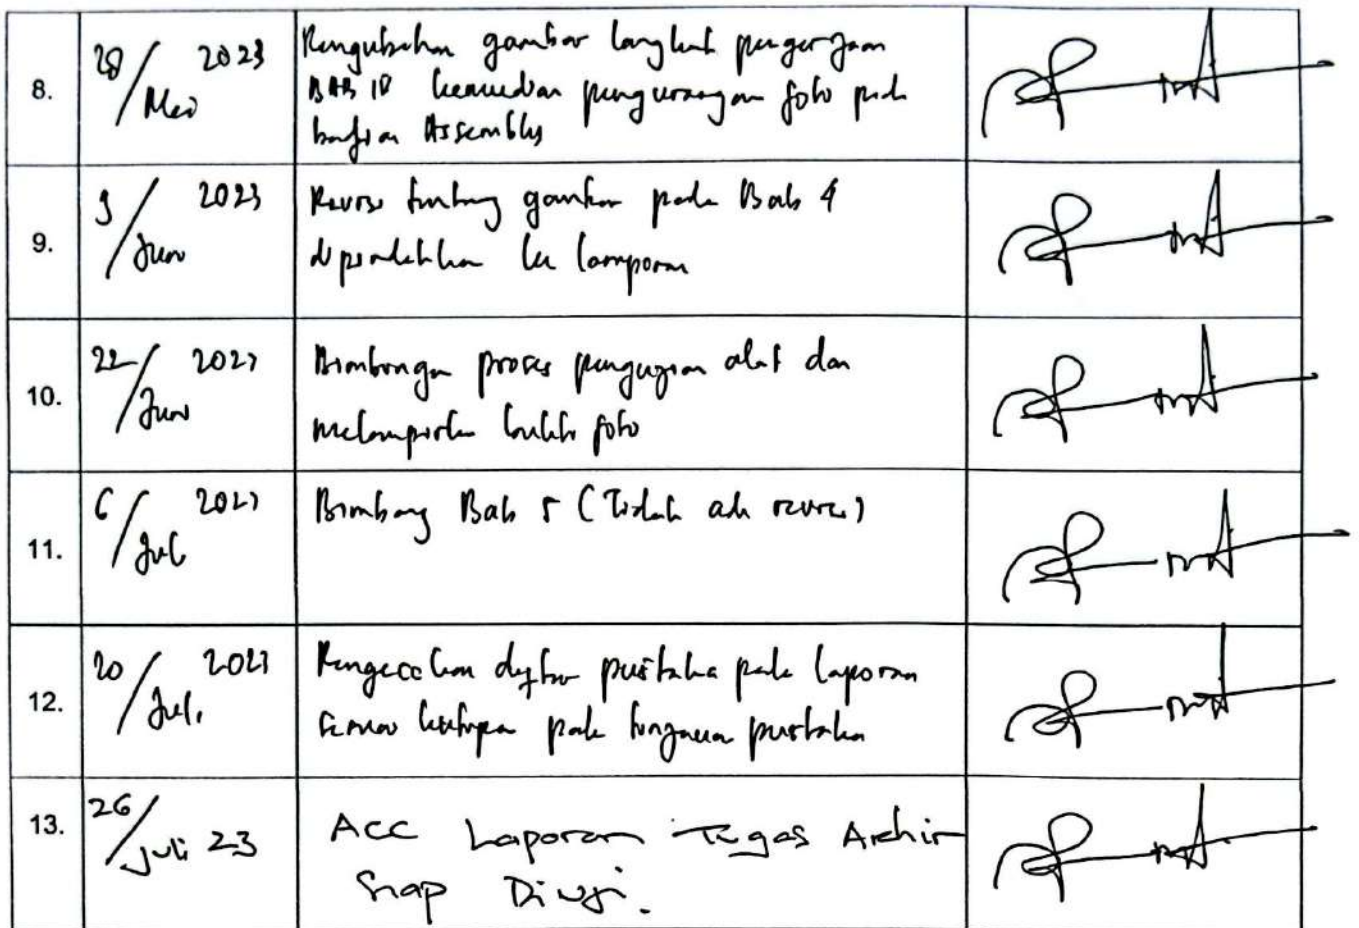 8.
28/Mei 2023
Pengubahan gambar langkah pengerjaan
BAB IV kemudian pengurangan foto pada
bagian Assembly
9.
9/Juni 2023
Revisi tentang gambar pada Bab 4
dipindahkan ke lampiran
10.
22/Juni 2023
Bimbingan proses pengujian alat dan
melampirkan bukti foto
11.
6/Juli 2023
Bimbing Bab 5 (Tidak ada revisi)
12.
20/Juli 2023
Pengecekan daftar pustaka pada laporan
sesuai kutipan pada tinjauan pustaka
13.
26/Juli 23
ACC Laporan Tugas Akhir
Siap Diuji.